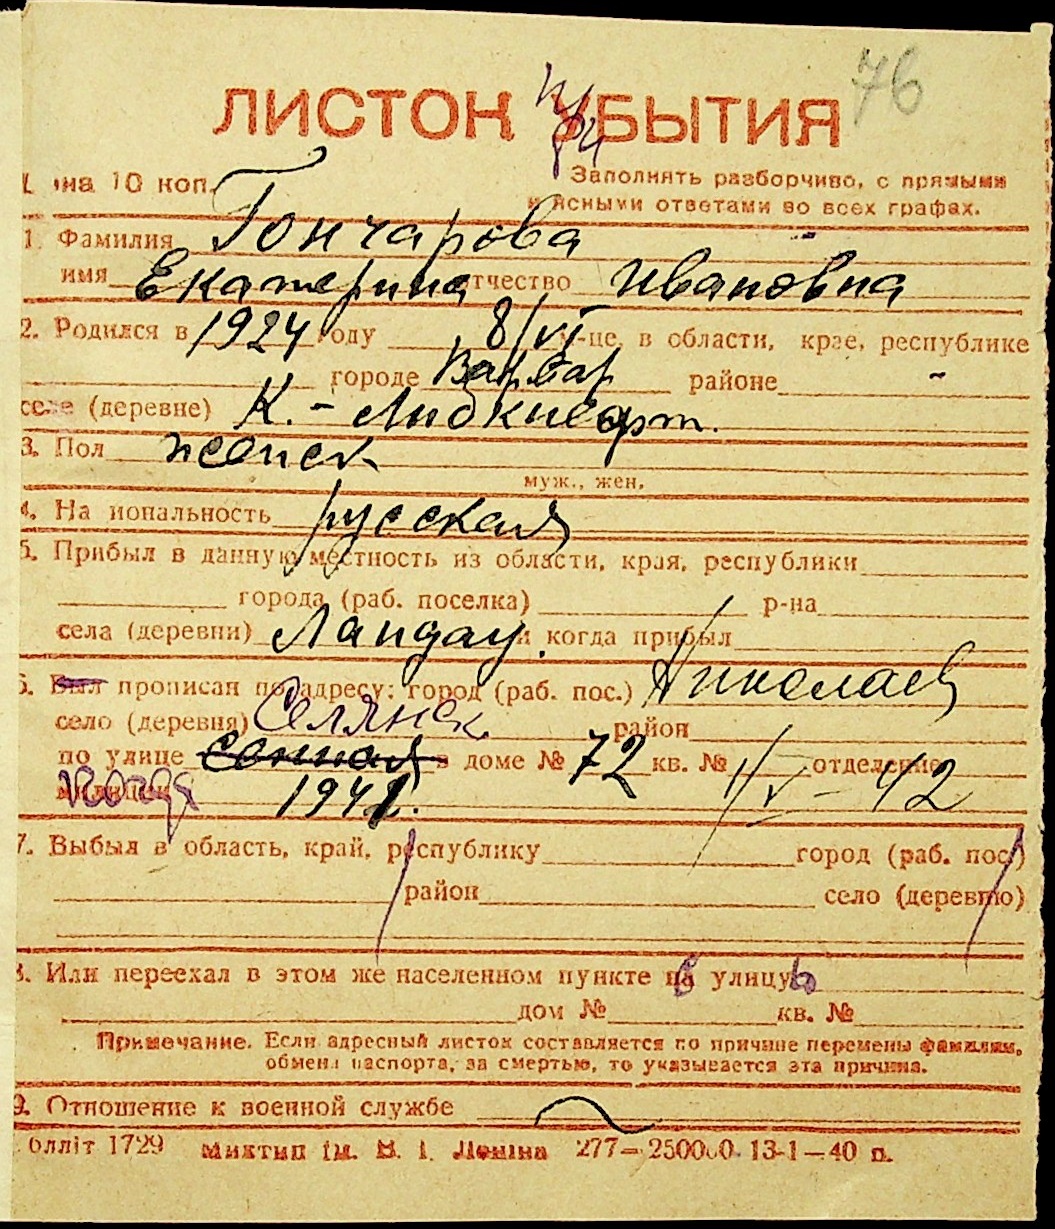 76
ЛИСТОК УБЫТИЯ
при
Цена 10 коп.
Заполнять разборчиво, с прямыми
и ясными ответами во всех графах.
1. Фамилия Гончарова
имя Екатерина отчество Ивановна
2. Родился в 1924 году 8/VI м-це, в области, крае, республике
городе районе -
селе (деревне) К.-Либкнехт.
3. Пол женск
муж., жен.
4. Национальность русская
5. Прибыл в данную местность из области, края, республики
города (раб. поселка) р-на
села (деревни) Ландау. и когда прибыл
6. Был прописан по адресу: город (раб. пос.) Николаев
село (деревня) Селянск. район
по улице сенная в доме № 72 кв. № отделение
милиции когда 1942. 1/V-42
7. Выбыл в область, край, республику город (раб. пос.)
район село (деревню)
8. Или переехал в этом же населенном пункте на улицу
дом № кв. №
Примечание. Если адресный листок составляется по причине перемены фамилии,
обмена паспорта, за смертью, то указывается эта причина.
9. Отношение к военной службе
олліт 1729 Миктип ім. В. І. Леніна 277—250000 13-1—40 п.